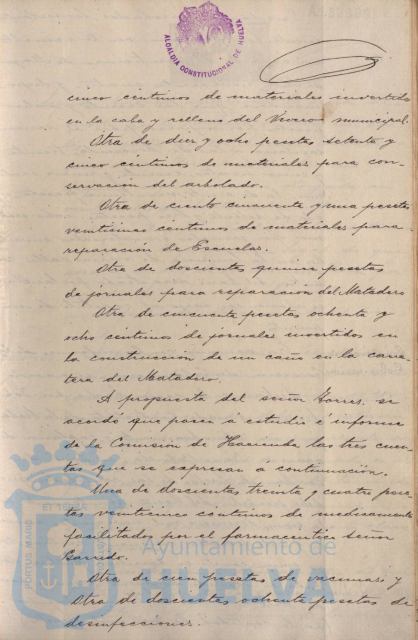 ALCALDIA CONSTITUCIONAL DE HUELVA
cinco centimos de materiales invertidos
en la caba y relleno del Vivero municipal.
Otra de diez y ocho pesetas setenta y
cinco centimos de materiales para con-
servación del arbolado.
Otra de ciento cincuenta y una pesetas
veinticinco centimos de materiales para
reparación de Escuelas.
Otra de doscientas quince pesetas
de jornales para reparación del Matadero
Otra de cincuenta pesetas ochenta y
ocho centimos de jornales invertidos en
la construcción de un caño en la carre-
tera del Matadero.
A propuesta del señor Torres, se
acordó que pasen á estudio é informe
de la Comisión de Hacienda las tres cuen-
tas que se expresan á continuación.
Una de doscientas treinta y cuatro pese-
tas veinticinco centimos de medicamentos
facilitados por el farmaceutico señor
Garrido.
Otra de cien pesetas de vacunas y
Otra de doscientas ochenta pesetas de
desinfecciones.
PORTUS MARIS
Ayuntamiento de
HUELVA